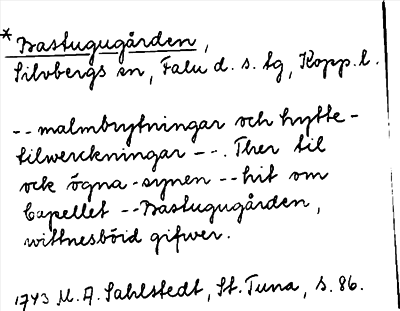 * Bastugugården,
Silvbergs sn, Falu d. s. tg, Kopp. l.
-- malmbrytningar och hytte-
tilwerckningar --. Ther til
ock ögna-synen -- hit om
Capellet -- Bastugugården,
wittnesbörd gifwer.
1743 M. A. Sahlstedt, St. Tuna, s. 86.